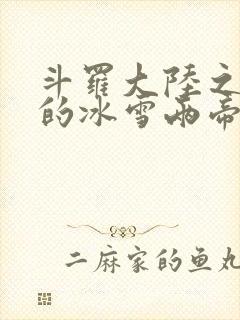 斗羅大陸之
的冰雪兩帝
二麻家的鱼丸